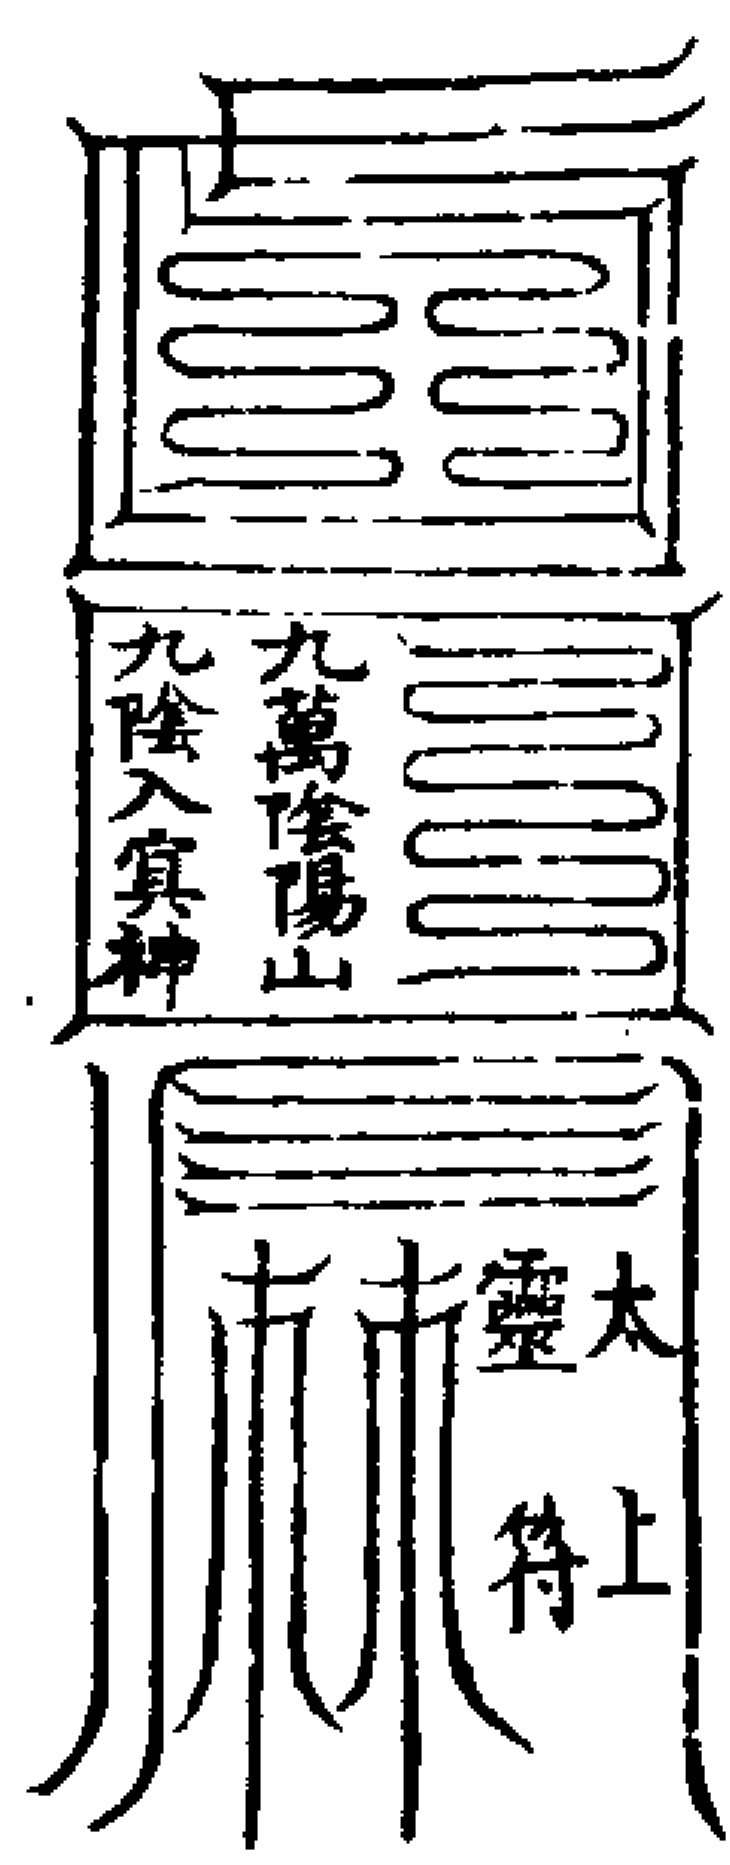 九萬陰陽山
九陰入寘神
太上
靈符